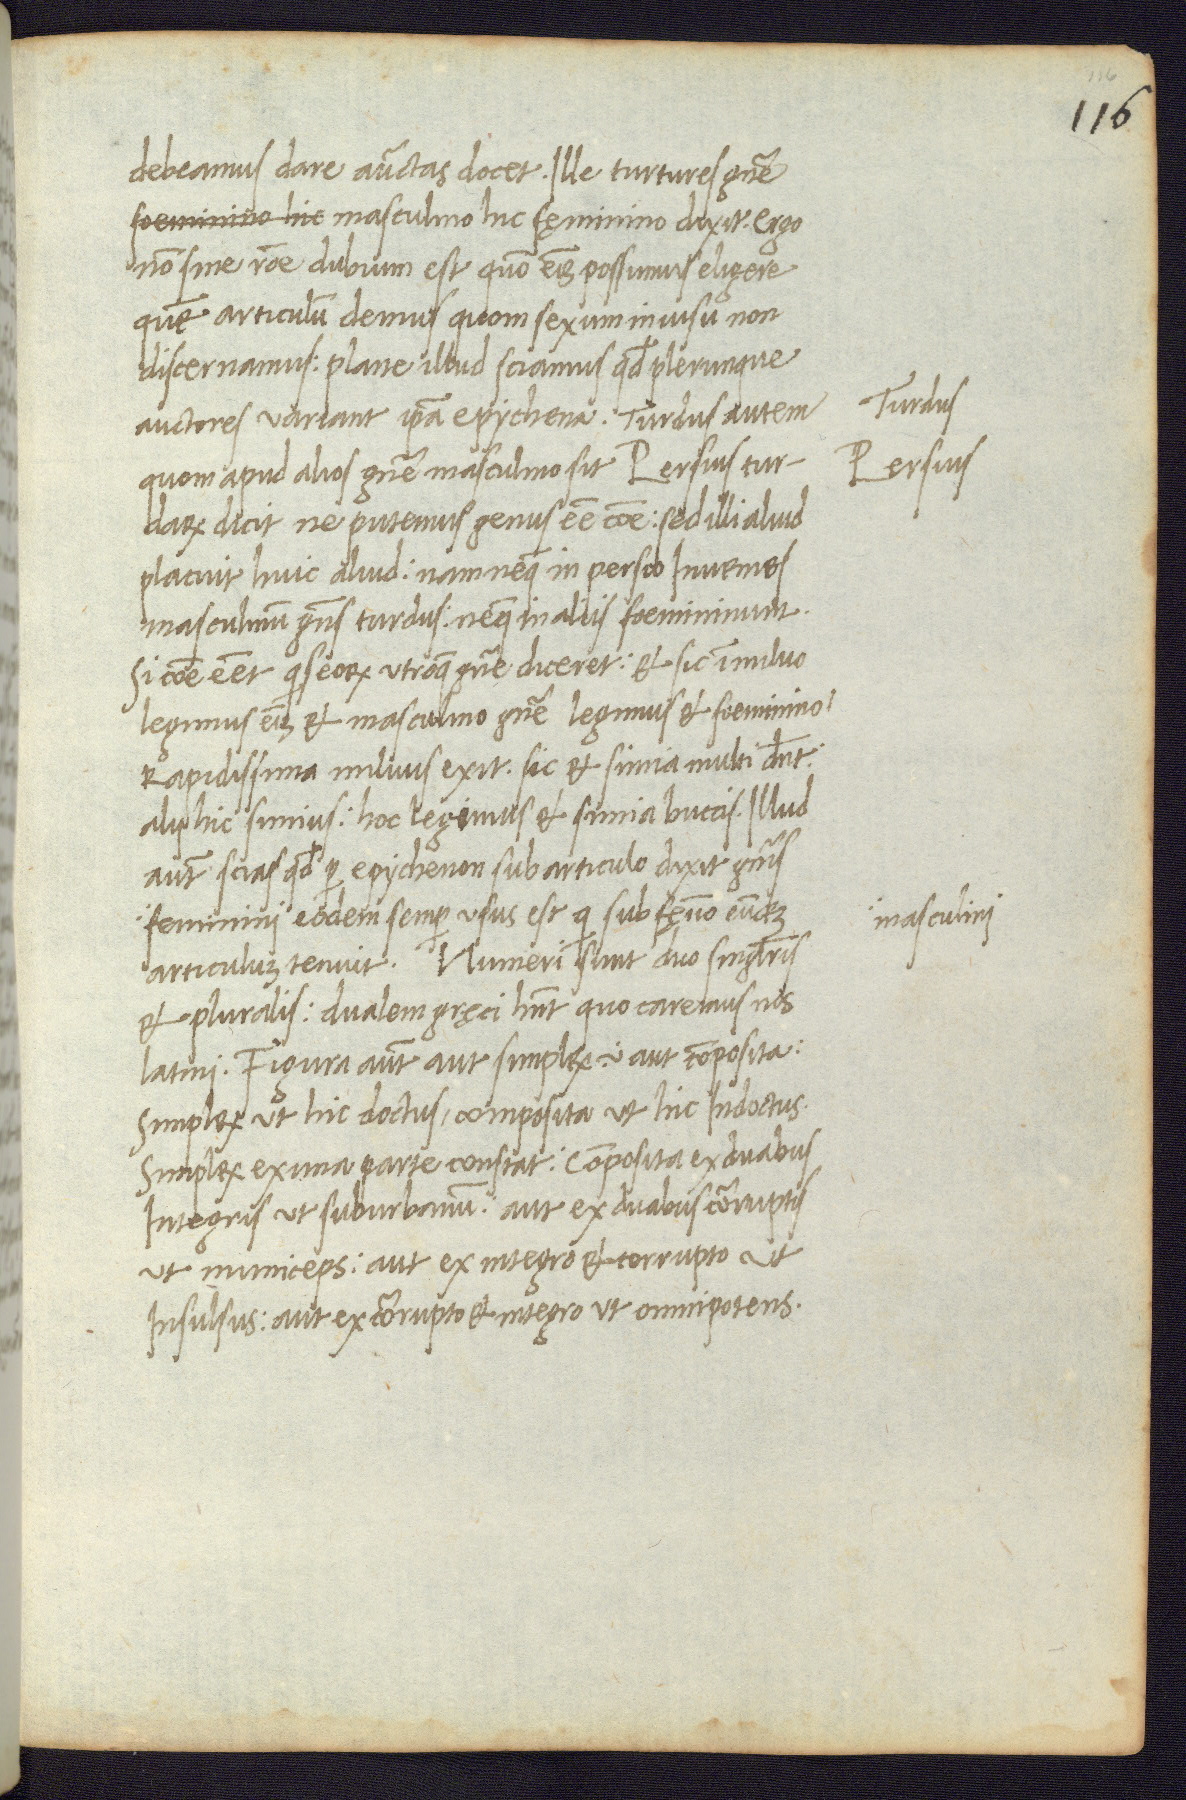 116
116
debeamus dare auc̄tas docet. Ille turtures gn̄e
foeminino hic masculino hic fęminino dixit. Ergo
nō sine rōe dubium est quō eīs possumus eligere
quē articulū demus quom sexum in uisu non
discernamus: plane illud sciamus qd̄ plerunque
auctores variant ip̄a epychena: Turdus autem
Turdus
quom apud alios gn̄e masculino sit Persius tur-
Persius
daꝝ dicit ne putemus genus eē cōe: sed illi aliud
placuit huic aliud: nam neq̄ in persio Inuenies
masculinū gn̄s turdus: neq̄ in aliis foemininum.
Si cōe eēt q̄ seorꝝ vtroq̄ gn̄e diceret: & sic ī miluo
legimus eī & masculino gn̄e legimus & foeminino
Rapidissima miluus exit. sic & simia multi dn̄t:
alii hic simius: hoc legimus & simia buccis. Illud
aut̄ scias qd̄ ꝑ epychenon sub articulo dixit gn̄is
feminini eodem semꝑ vsus est q sub fęīno eūdē
masculini
articulum tenuit. Numeri sunt duo singl̄ris
& pluralis: dualem gręci hn̄t quo caremus nos
latini. Figura aut̄ aut simplex: aut cōposita:
Simplex vt hic doctus, composita vt hic Indoctus.
Simplex ex una parte constat: Cōposita ex duabus
Integris vt suburbanū: aut ex duabus cōrruptis
vt municeps: aut ex integro & corrupto vt
Insulsus: aut ex cōrrupto & integro vt omnipotens.